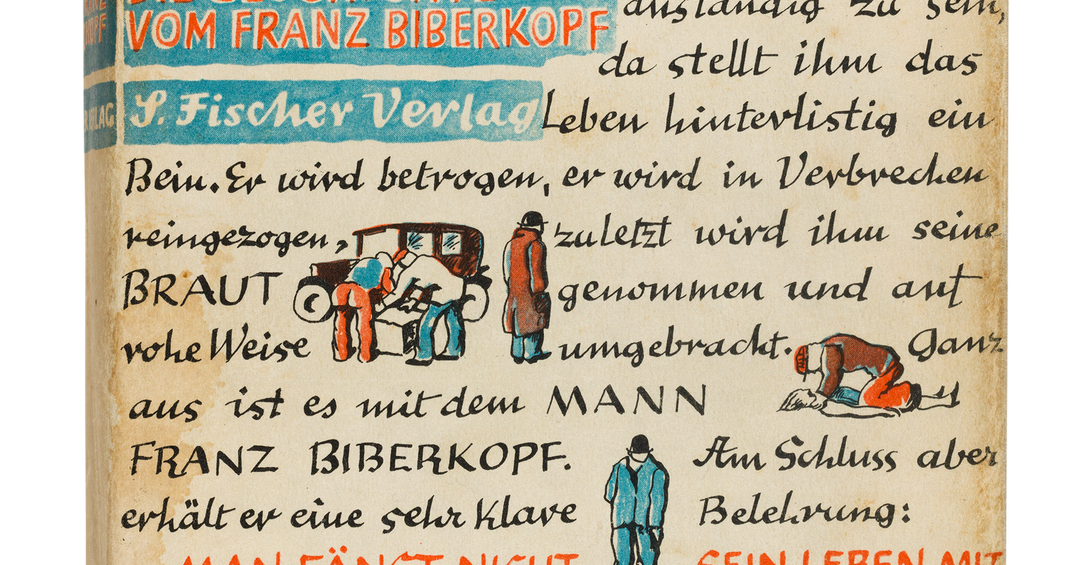 VOM FRANZ BIBERKOPF
anständig zu sein,
da stellt ihm das
S. Fischer Verlag Leben hinterlistig ein
Bein. Er wird betrogen, er wird in Verbrechen
reingezogen, zuletzt wird ihm seine
BRAUT genommen und auf
rohe Weise umgebracht. Ganz
aus ist es mit dem MANN
FRANZ BIBERKOPF. Am Schluss aber
erhält er eine sehr klare Belehrung:
MAN FÄNGT NICHT SEIN LEBEN MIT